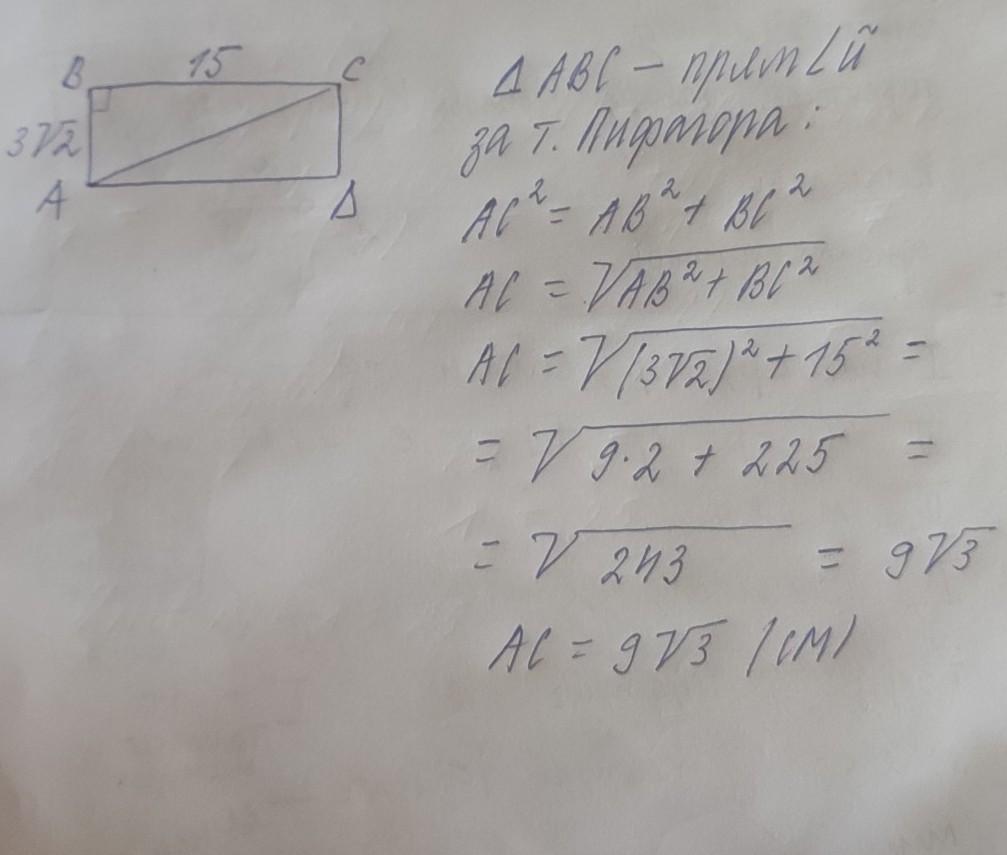 B 15 C
3√2
A Δ
Δ ABC – прям∠й
за т. Пифагора:
AC² = AB² + BC²
AC = √AB² + BC²
AC = √(3√2)² + 15² =
= √9·2 + 225 =
= √243 = 9√3
AC = 9√3 (см)